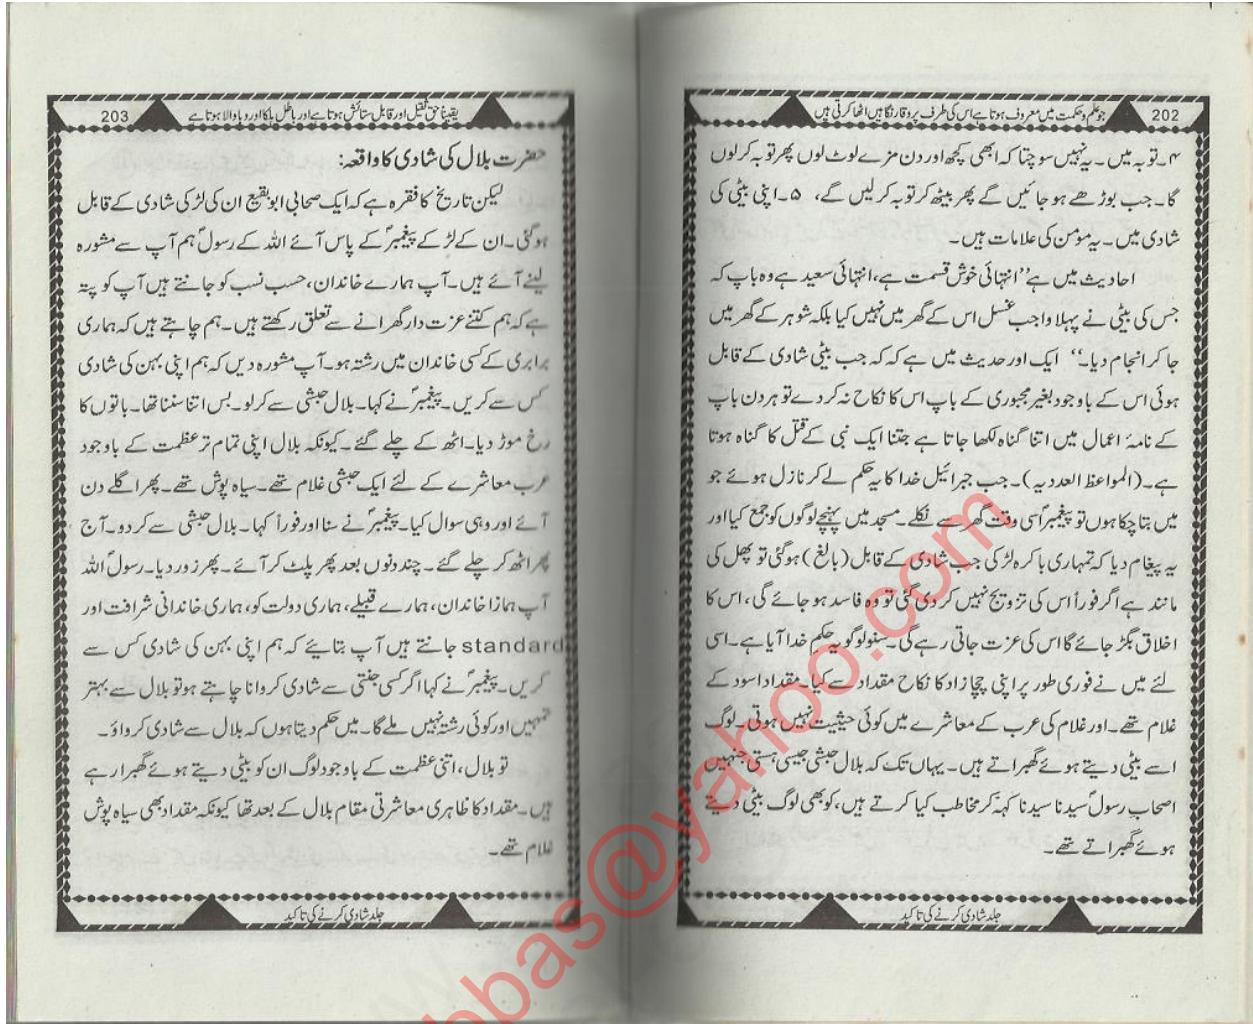 جو علم و حکمت میں معروف ہوتا ہے اس کی طرف پروقار نگاہیں اٹھا کرتی ہیں 202
۴۔ توبہ میں ۔ یہ نہیں سوچتا کہ ابھی کچھ اور دن مزے لوٹ لوں پھر توبہ کر لوں
گا۔ جب بوڑھے ہو جائیں گے پھر بیٹھ کر توبہ کر لیں گے، ۵۔ اپنی بیٹی کی
شادی میں ۔ یہ مومن کی علامات ہیں ۔
احادیث میں ہے ’’انتہائی خوش قسمت ہے، انتہائی سعید ہے وہ باپ کہ
جس کی بیٹی نے پہلا واجب غسل اس کے گھر میں نہیں کیا بلکہ شوہر کے گھر میں
جا کر انجام دیا۔‘‘ ایک اور حدیث میں ہے کہ کہ جب بیٹی شادی کے قابل
ہوئی اس کے باوجود بغیر مجبوری کے باپ اس کا نکاح نہ کر دے تو ہر دن باپ
کے نامۂ اعمال میں اتنا گناہ لکھا جاتا ہے جتنا ایک نبی کے قتل کا گناہ ہوتا
ہے۔ (المواعظ العددیہ)۔ جب جبرائیل خدا کا یہ حکم لے کر نازل ہوئے جو
میں بتا چکا ہوں تو پیغمبرؐ اسی وقت گھر سے نکلے۔ مسجد میں پہنچے لوگوں کو جمع کیا اور
یہ پیغام دیا کہ تمہاری باکرہ لڑکی جب شادی کے قابل (بالغ) ہو گئی تو پھل کی
مانند ہے اگر فوراً اس کی تزویج نہیں کر دی گئی تو وہ فاسد ہو جائے گی، اس کا
اخلاق بگڑ جائے گا اس کی عزت جاتی رہے گی۔ سنو لوگو یہ حکم خدا آیا ہے۔ اسی
لئے میں نے فوری طور پر اپنی چچا زاد کا نکاح مقداد سے کیا۔ مقداد اسود کے
غلام تھے۔ اور غلام کی عرب کے معاشرے میں کوئی حیثیت نہیں ہوتی۔ لوگ
اسے بیٹی دیتے ہوئے گھبراتے ہیں۔ یہاں تک کہ بلال حبشی جیسی ہستی جنہیں
اصحاب رسولؐ سیدنا سیدنا کہہ کر مخاطب کیا کرتے ہیں، کو بھی لوگ بیٹی دیتے
ہوئے گھبراتے تھے۔
جلد شادی کرنے کی تاکید
یقیناً حق ثقیل اور قابل ستائش ہوتا ہے اور باطل ہلکا اور وبا والا ہوتا ہے 203
حضرت بلال کی شادی کا واقعہ:
لیکن تاریخ کا فقرہ ہے کہ ایک صحابی ابو بقیع ان کی لڑکی شادی کے قابل
ہو گئی۔ ان کے لڑکے پیغمبرؐ کے پاس آئے اللہ کے رسولؐ ہم آپ سے مشورہ
لینے آئے ہیں۔ آپ ہمارے خاندان، حسب نسب کو جانتے ہیں آپ کو پتہ
ہے کہ ہم کتنے عزت دار گھرانے سے تعلق رکھتے ہیں۔ ہم چاہتے ہیں کہ ہماری
برابری کے کسی خاندان میں رشتہ ہو۔ آپ مشورہ دیں کہ ہم اپنی بہن کی شادی
کس سے کریں۔ پیغمبرؐ نے کہا۔ بلال حبشی سے کر لو۔ بس اتنا سننا تھا۔ باتوں کا
رخ موڑ دیا۔ اٹھ کے چلے گئے۔ کیونکہ بلال اپنی تمام تر عظمت کے باوجود
عرب معاشرے کے لئے ایک حبشی غلام تھے۔ سیاہ پوش تھے۔ پھر اگلے دن
آئے اور وہی سوال کیا۔ پیغمبرؐ نے سنا اور فوراً کہا۔ بلال حبشی سے کر دو۔ آج
پھر اٹھ کر چلے گئے۔ چند دنوں بعد پھر پلٹ کر آئے۔ پھر زور دیا۔ رسولؐ اللہ
آپ ہمارا خاندان، ہمارے قبیلے، ہماری دولت کو، ہماری خاندانی شرافت اور
standard جانتے ہیں آپ بتائیے کہ ہم اپنی بہن کی شادی کس سے
کریں۔ پیغمبرؐ نے کہا اگر کسی جنتی سے شادی کروانا چاہتے ہو تو بلال سے بہتر
تمہیں اور کوئی رشتہ نہیں ملے گا۔ میں حکم دیتا ہوں کہ بلال سے شادی کرواؤ۔
تو بلال، اتنی عظمت کے باوجود لوگ ان کو بیٹی دیتے ہوئے گھبرا رہے
ہیں۔ مقداد کا ظاہری معاشرتی مقام بلال کے بعد تھا کیونکہ مقداد بھی سیاہ پوش
غلام تھے۔
جلد شادی کرنے کی تاکید
bbas@yahoo.com